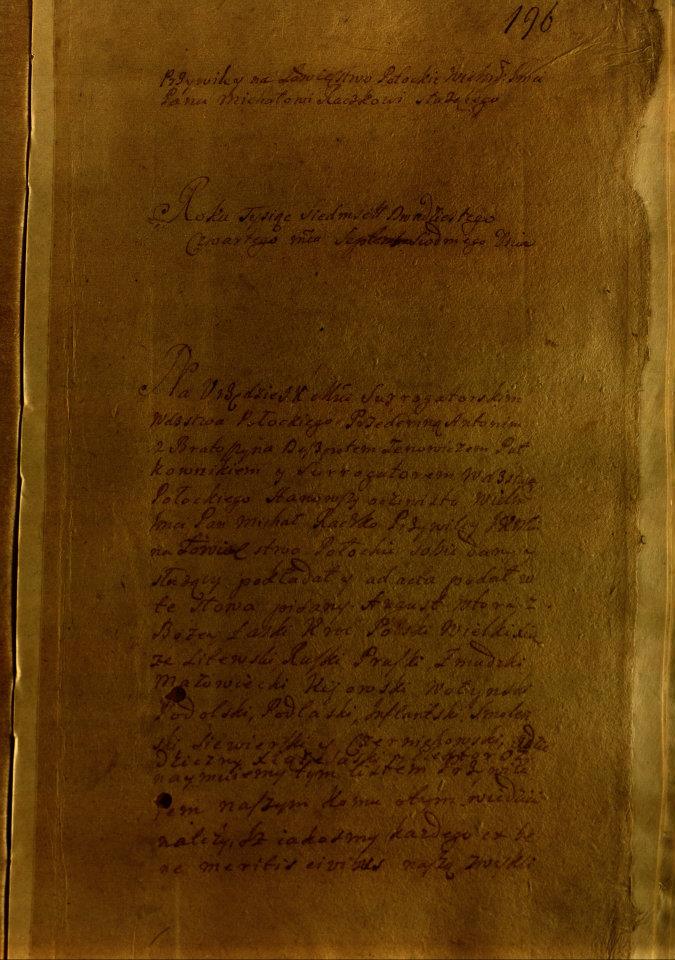 196
Przywiley na Łowięstwo Połockie Wielm Jmci
Panu Michałowi Raczkowi służącego
Roku Tysiąc siedmsett Dwudziestego
Czwartego mca Septembra siodmego Dnia
Na Vrzędzie J. K. Msci Surrogatorskim
Wdztwa Połockiego Przedemną Antonim
z Bratoszyna Despotem Zenowiczem Puł
kownikiem y Surrogatorem Wdztwa
Połockiego stanowszy oczewisto Wielm
Jmc Pan Michał Raczko Przywiley
na Łowię stwo Połockie sobie dany y
służący podkładał y ad acta podał w
te słowa pisany. August wtory z
Bożey Łaski Krol Polski Wielki Xią
ze Litewski Ruski Pruski Zmudzki
Mazowiecki Kijowski Wołynski
Podolski, Podlaski, Inflantski, Smolen
ski, Siewierski y Czerniechowski,
dziczny
naymuiemy tym listem Przywile
iem naszym komu otym wiedzieć
należy, Iż iakosmy każdego ex be
ne meritis civibus naszą zwykli